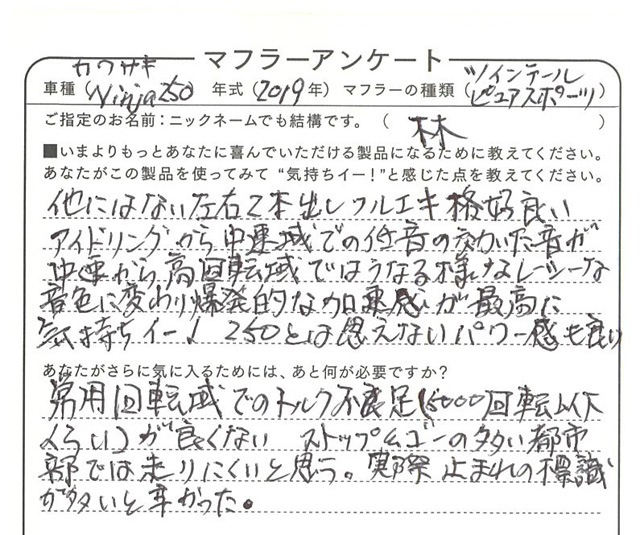 マフラーアンケート
車種(カワサキ Ninja250 年式(2019年) マフラーの種類(ツインテール ピュアスポーツ)
ご指定のお名前:ニックネームでも結構です。( 林 )
■いまよりもっとあなたに喜んでいただける製品になるために教えてください。
あなたがこの製品を使ってみて“気持ちイー!”と感じた点を教えてください。
他にはない左右2本出しフルエキ格好良い
アイドリングから中速域での低音の効いた音が
中速から高回転域ではうなる様なレーシーな
音色に変わり爆発的な加速感が最高に
気持ちイー! 250とは思えないパワー感も良い
あなたがさらに気に入るためには、あと何が必要ですか?
常用回転域でのトルク不足(5000回転以下
くらい)が良くない ストップ&ゴーの多い都市
部では走りにくいと思う。実際止まれの標識
が多いと辛かった。